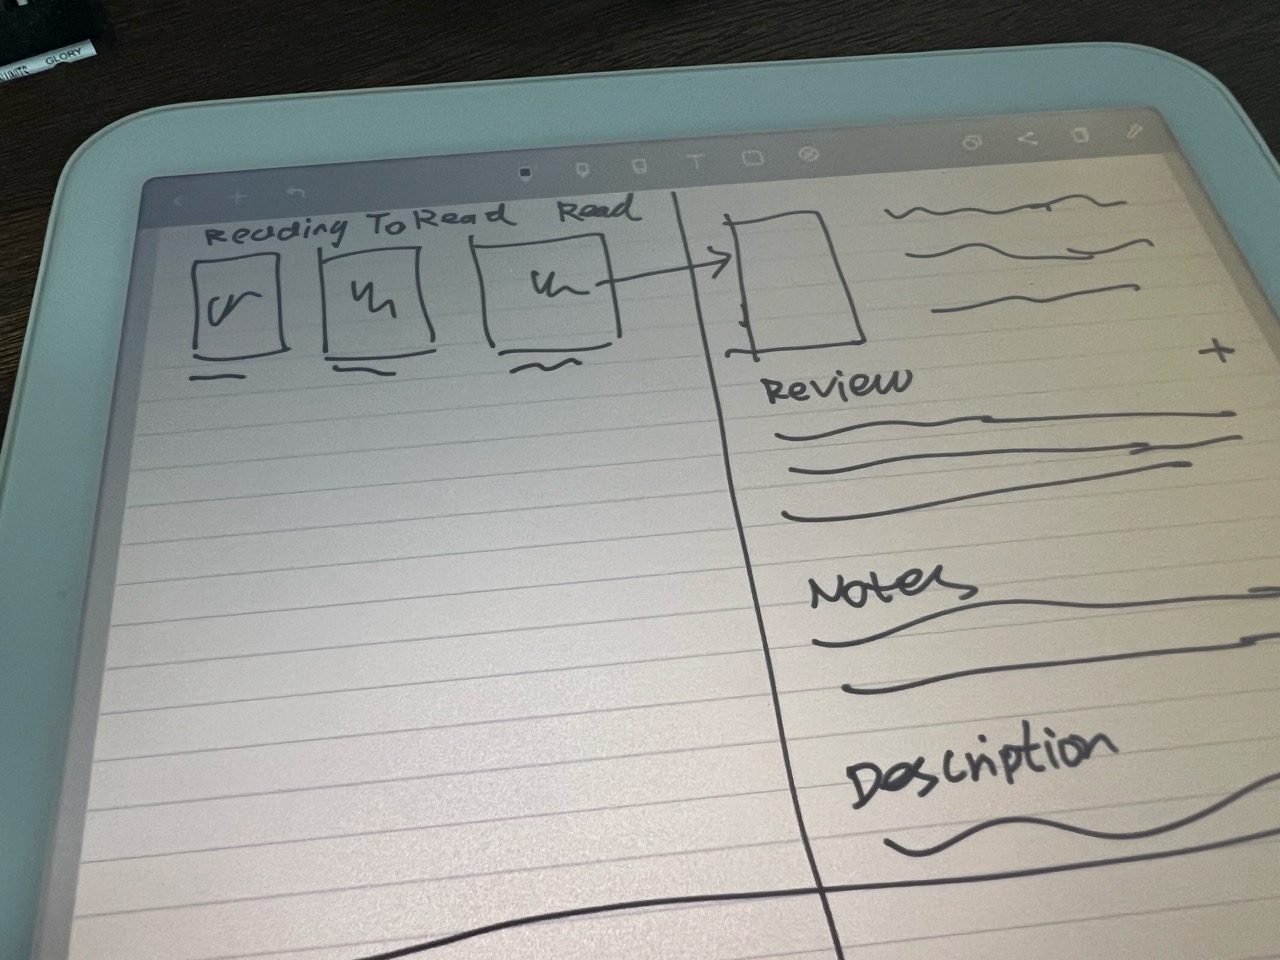 GLORY
T
Reading To Read Read
+
Review
Notes
Description